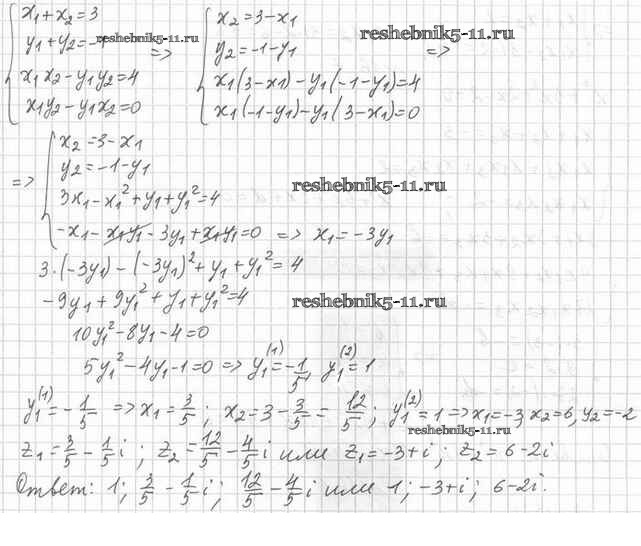 x₁+x₂=3
y₁+y₂=-1 =>
x₁x₂-y₁y₂=4
x₁y₂-y₁x₂=0
reshebnik5-11.ru
x₂=3-x₁
y₂=-1-y₁ =>
x₁(3-x₁)-y₁(-1-y₁)=4
x₁(-1-y₁)-y₁(3-x₁)=0
reshebnik5-11.ru
=> x₂=3-x₁
y₂=-1-y₁
3x₁-x₁²+y₁+y₁²=4
-x₁-x₁y₁-3y₁+x₁y₁=0 => x₁=-3y₁
reshebnik5-11.ru
3·(-3y₁)-(-3y₁)²+y₁+y₁²=4
-9y₁+9y₁²+y₁+y₁²=4
reshebnik5-11.ru
10y₁²-8y₁-4=0
5y₁²-4y₁-1=0 => y₁⁽¹⁾=-1/5, y₁⁽²⁾=1
y₁⁽¹⁾=-1/5 => x₁=3/5; x₂=3-3/5=12/5; y₁⁽²⁾=1=>x₁=-3, x₂=6, y₂=-2
reshebnik5-11.ru
z₁=3/5-1/5i; z₂=12/5-4/5i или z₁=-3+i; z₂=6-2i
Ответ: 1; 3/5-1/5i; 12/5-4/5i или 1; -3+i; 6-2i.